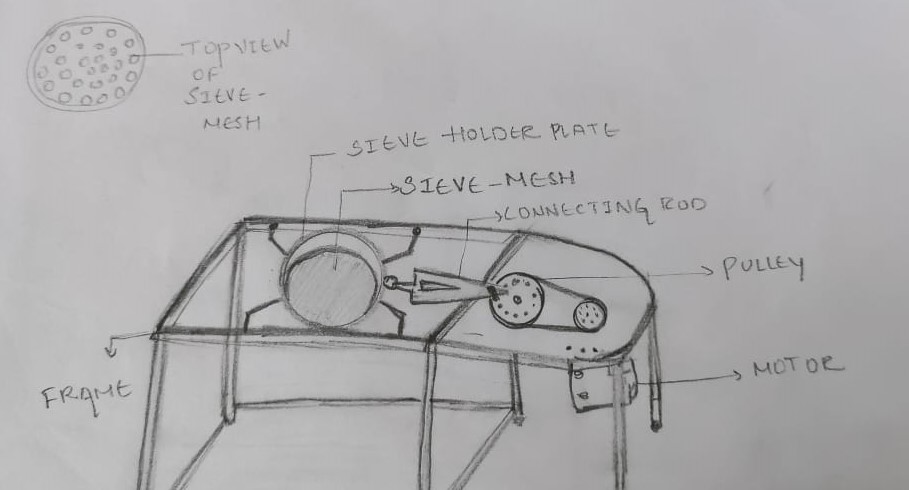 TOPVIEW
OF
SIEVE-
MESH
SIEVE HOLDER PLATE
SIEVE-MESH
CONNECTING ROD
PULLEY
MOTOR
FRAME